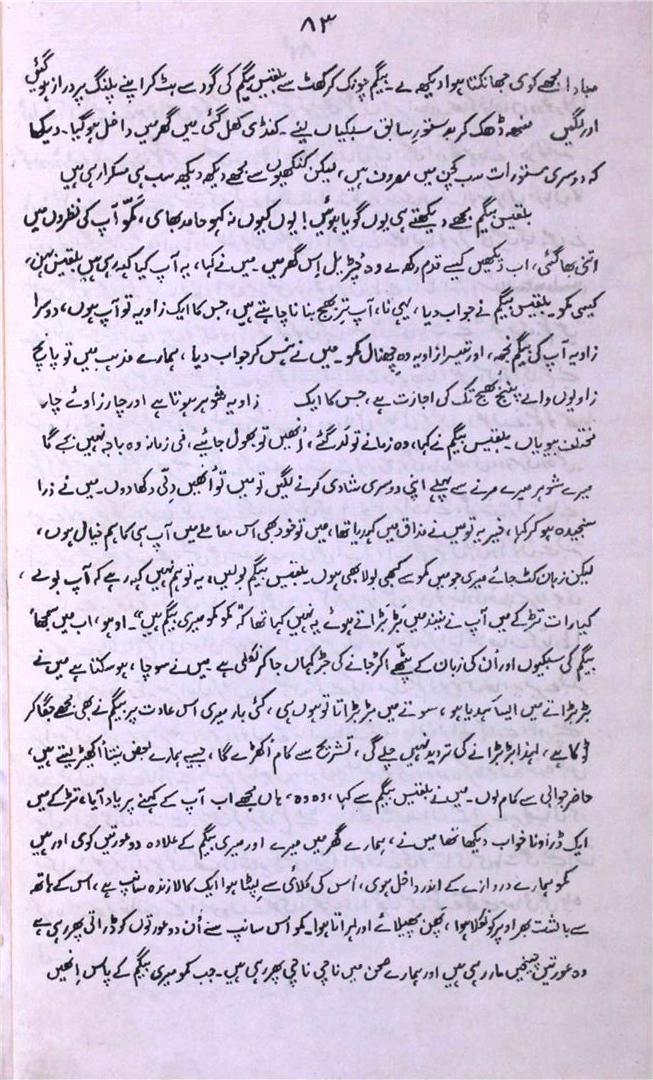 ۸۳
مبادا مجھے کوئی جھانکتا ہوا دیکھ لے۔ بیگم چونک کر کھٹ سے بلقیس بیگم کی گود سے ہٹ کر اپنے پلنگ پر دراز ہو گئیں
اور لگیں منھ ڈھک کر بدستور سابق سبکیاں لینے۔ کنڈی کھل گئی میں گھر میں داخل ہو گیا۔ دیکھا
کہ دوسری مستورات سب کچن میں مصروف ہیں، لیکن کنکھیوں سے مجھے دیکھ دیکھ سب ہی مسکرا رہی ہیں
بلقیس بیگم مجھے دیکھتے ہی یوں گویا ہوئیں! یوں کیوں نہ کہو حامد بھائی، کمّو آپ کی نظروں میں
اتنی بھا گئی، اب دیکھیں کیسے قدم رکھ لے وہ چڑیل اس گھر میں۔ میں نے کہا، یہ آپ کیا کہہ رہی ہیں بلقیس بہن،
کیسی کمو۔ بلقیس بیگم نے جواب دیا، یہی نا، آپ تربھیج بنانا چاہتے ہیں، جس کا ایک زاویہ تو آپ ہوں، دوسرا
زاویہ آپ کی بیگم نجمہ، اور تیسرا زاویہ وہ چھنال کمو۔ میں نے ہنس کر جواب دیا، ہمارے مذہب میں تو پانچ
زاویوں والے پنچ بھیج تک کی اجازت ہے، جس کا ایک زاویہ شوہر ہوتا ہے اور چار زاوئے چار
مختلف بیویاں بلقیس بیگم نے کہا، وہ زمانے تو لد گئے، اُنھیں تو بھول جائیے، فی زمانہ وہ باجہ نہیں بجے گا
میرے شوہر میرے مرنے سے پہلے اپنی دوسری شادی کرنے لگیں تو میں تو اُنھیں دِلّی دکھا دوں۔ میں نے ذرا
سنجیدہ ہو کر کہا، خیر یہ تو میں نے مذاق میں کہہ دیا تھا، میں تو خود بھی اس معاملے میں آپ ہی کا ہم خیال ہوں،
لیکن زبان کٹ جائے میری جو میں کمو سے کبھی بولا بھی ہوں۔ بلقیس بیگم بولیں، یہ تو ہم نہیں کہہ رہے کہ آپ بولے،
کیا رات تڑکے میں آپ نے نیند میں بڑبڑاتے ہوئے یہ نہیں کہا تھا کہ "کمو کمو میری بیگم ہیں"۔ اوہو، اب میں سمجھا
بیگم کی سبکیوں اور اُن کی زبان کے پٹھے اکڑ جانے کی جڑ کہاں جا کر نکلی ہے میں نے سوچا، ہو سکتا ہے میں نے
بڑبڑاتے میں ایسا کہہ دیا ہو، سوتے میں بڑبڑاتا تو ہوں ہی، کئی بار میری اس عادت پر بیگم نے بھی مجھے جگا کر
ٹوکا ہے، لہذا بڑبڑانے کی تردید نہیں چلے گی، تشریح سے کام اکھڑے گا، جیسے ہمارے بعض نیتا اکھیڑ لیتے ہیں،
حاضر جوابی سے کام لوں۔ میں نے بلقیس بیگم سے کہا، وہ وہ، ہاں مجھے اب آپ کے کہنے پر یاد آیا، تڑکے میں
ایک ڈراونا خواب دیکھا تھا میں نے، ہمارے گھر میں میرے اور میری بیگم کے علاوہ دو عورتیں کوئی اور ہیں
کمو ہمارے دروازے کے اندر داخل ہوئی، اُس کی کلائی سے لپٹا ہوا ایک کالا زندہ سانپ ہے، اس کے ہاتھ
سے بالشت بھر اوپر کو نکلا ہوا، پھن پھیلائے اور لہراتا ہوا۔ کمو اس سانپ سے اُن دو عورتوں کو ڈراتی پھر رہی ہے
وہ عورتیں چیخیں مار رہی ہیں اور ہمارے صحن میں ناچی ناچی پھر رہی ہیں۔ جب کمو میری بیگم کے پاس اِنھیں